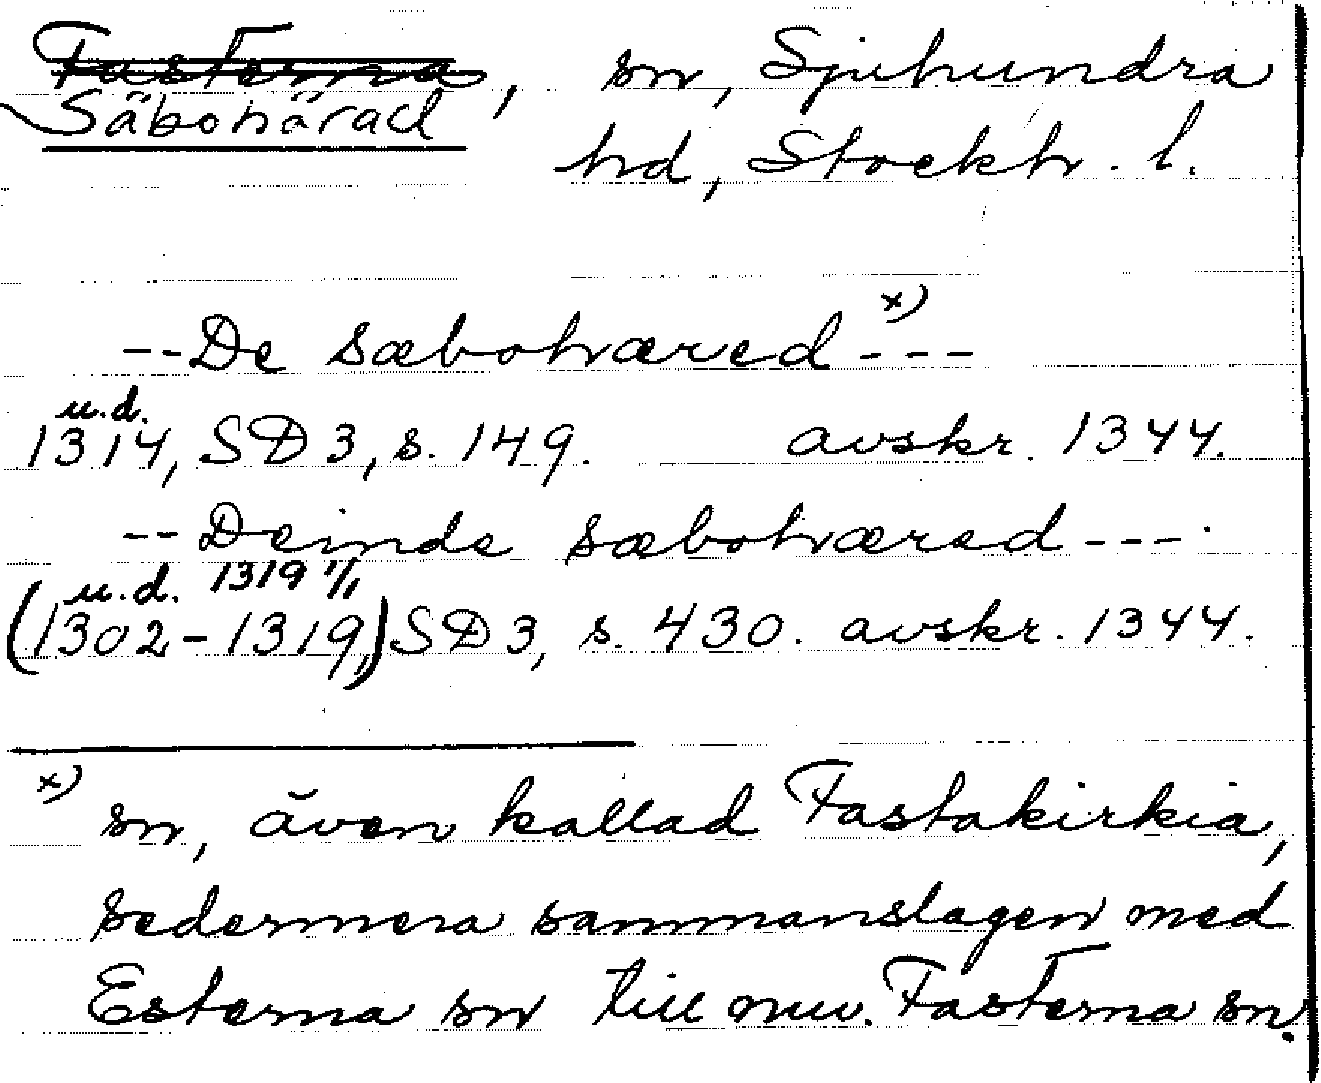 Fasterna, sn, Sjuhundra
Säbohärad
hd, Stockh. l.
--De sæbohæred x) ---
u.d.
1314, SD 3, s. 149. avskr. 1344.
--Deinde sæbohæred---.
u.d. 1319 1/1
(1302-1319,) SD 3, s. 430. avskr. 1344.
x) sn, även kallad Fastakirkia,
sedermera sammanslagen med
Esterna sn till nuv. Fasterna sn.